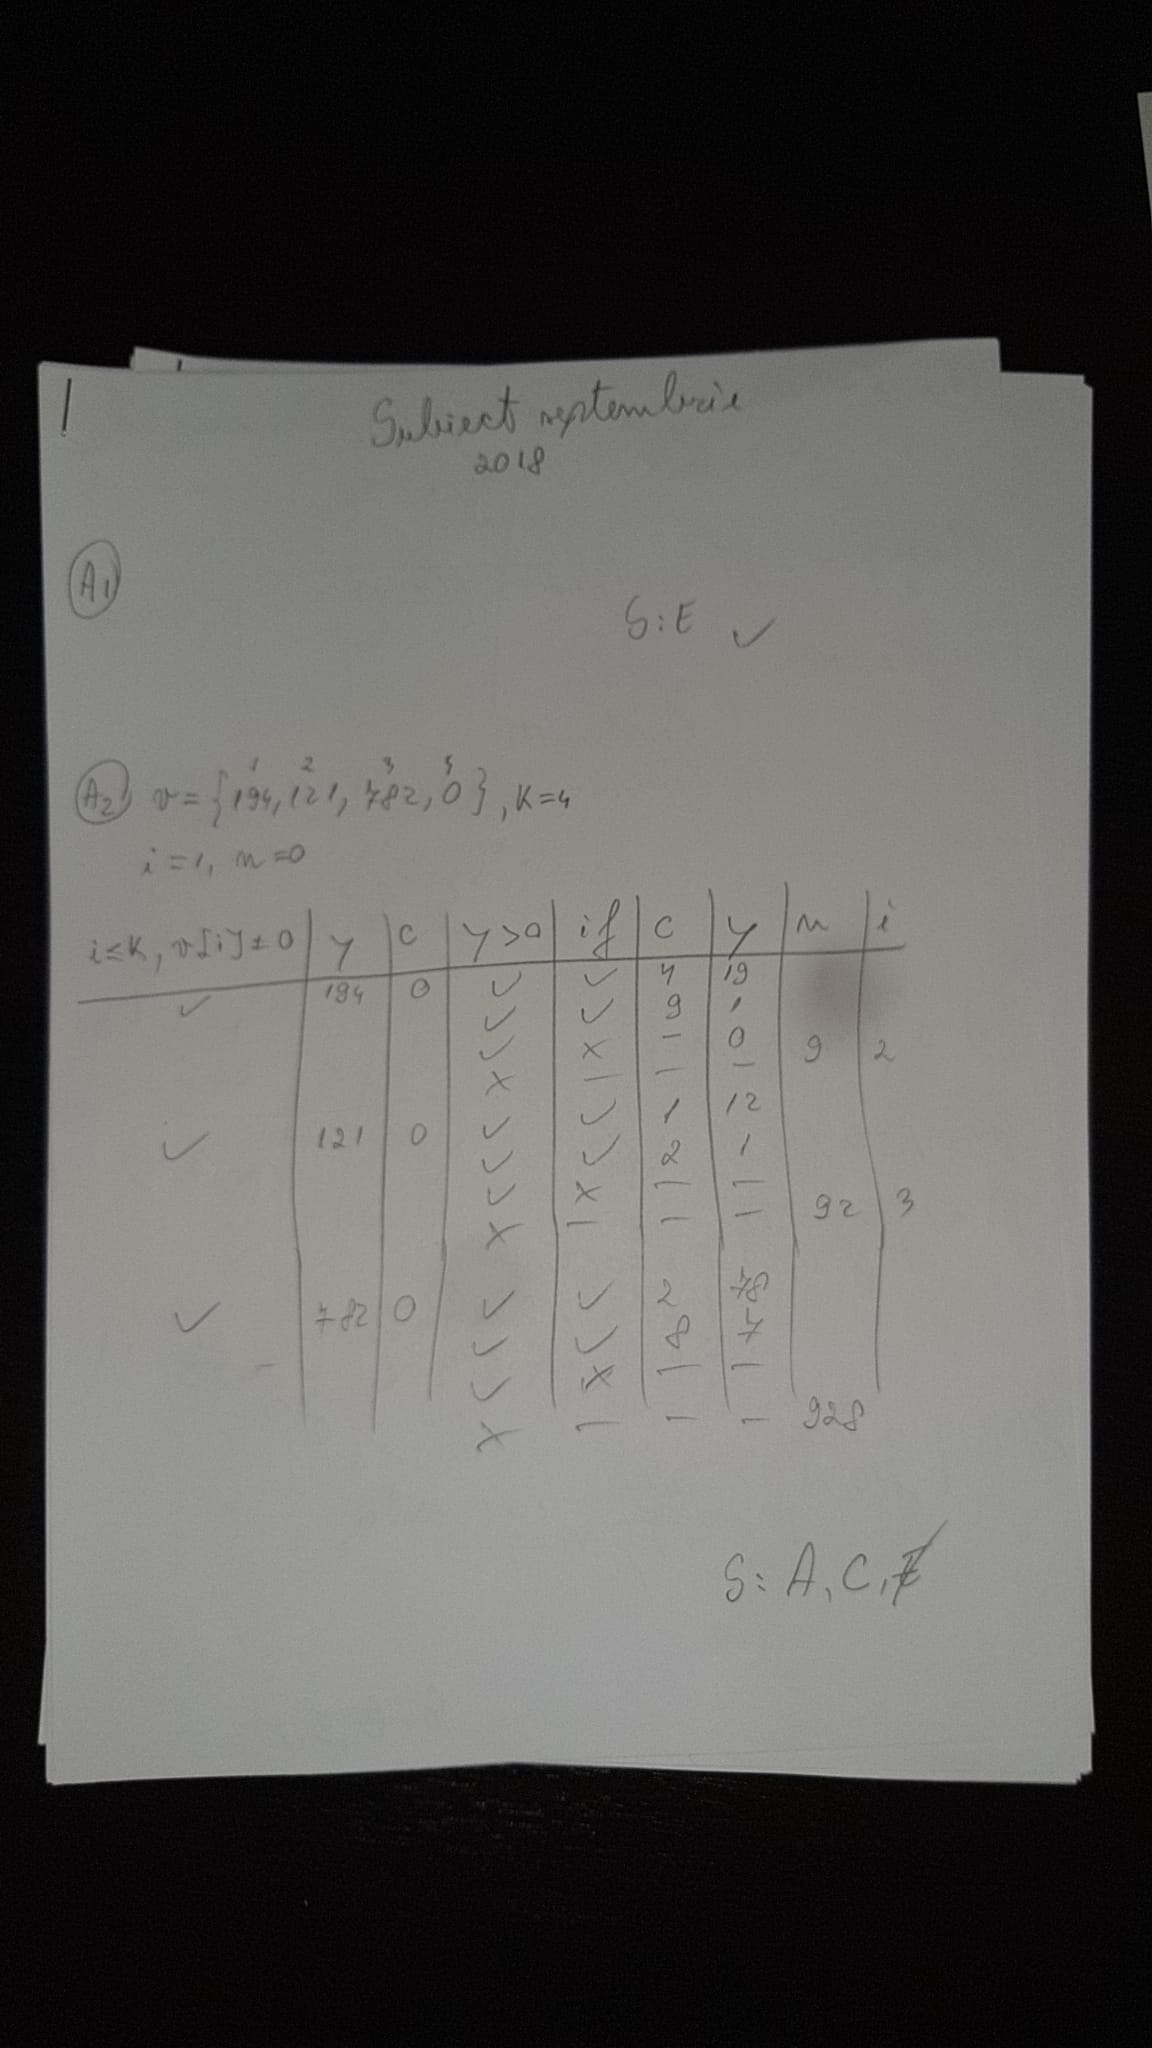 Subiect septembrie
2018
A1
S: E ✓
A2 v = {194, 121, 782, 0}, K=4
1 2 3 4
i=1, n=0
i≤K, v[i]≠0 | y | c | y>0 | if | c | y | n | i
✓ 194 0 ✓ ✓ 4 19
✓ ✓ 9 1
✓ x – 0 9 2
x – – –
✓ 121 0 ✓ ✓ 1 12
✓ ✓ 2 1
✓ x – – 92 3
x – – –
✓ 782 0 ✓ ✓ 2 78
✓ ✓ 8 7
✓ x – –
x – – – 928
S: A, C,